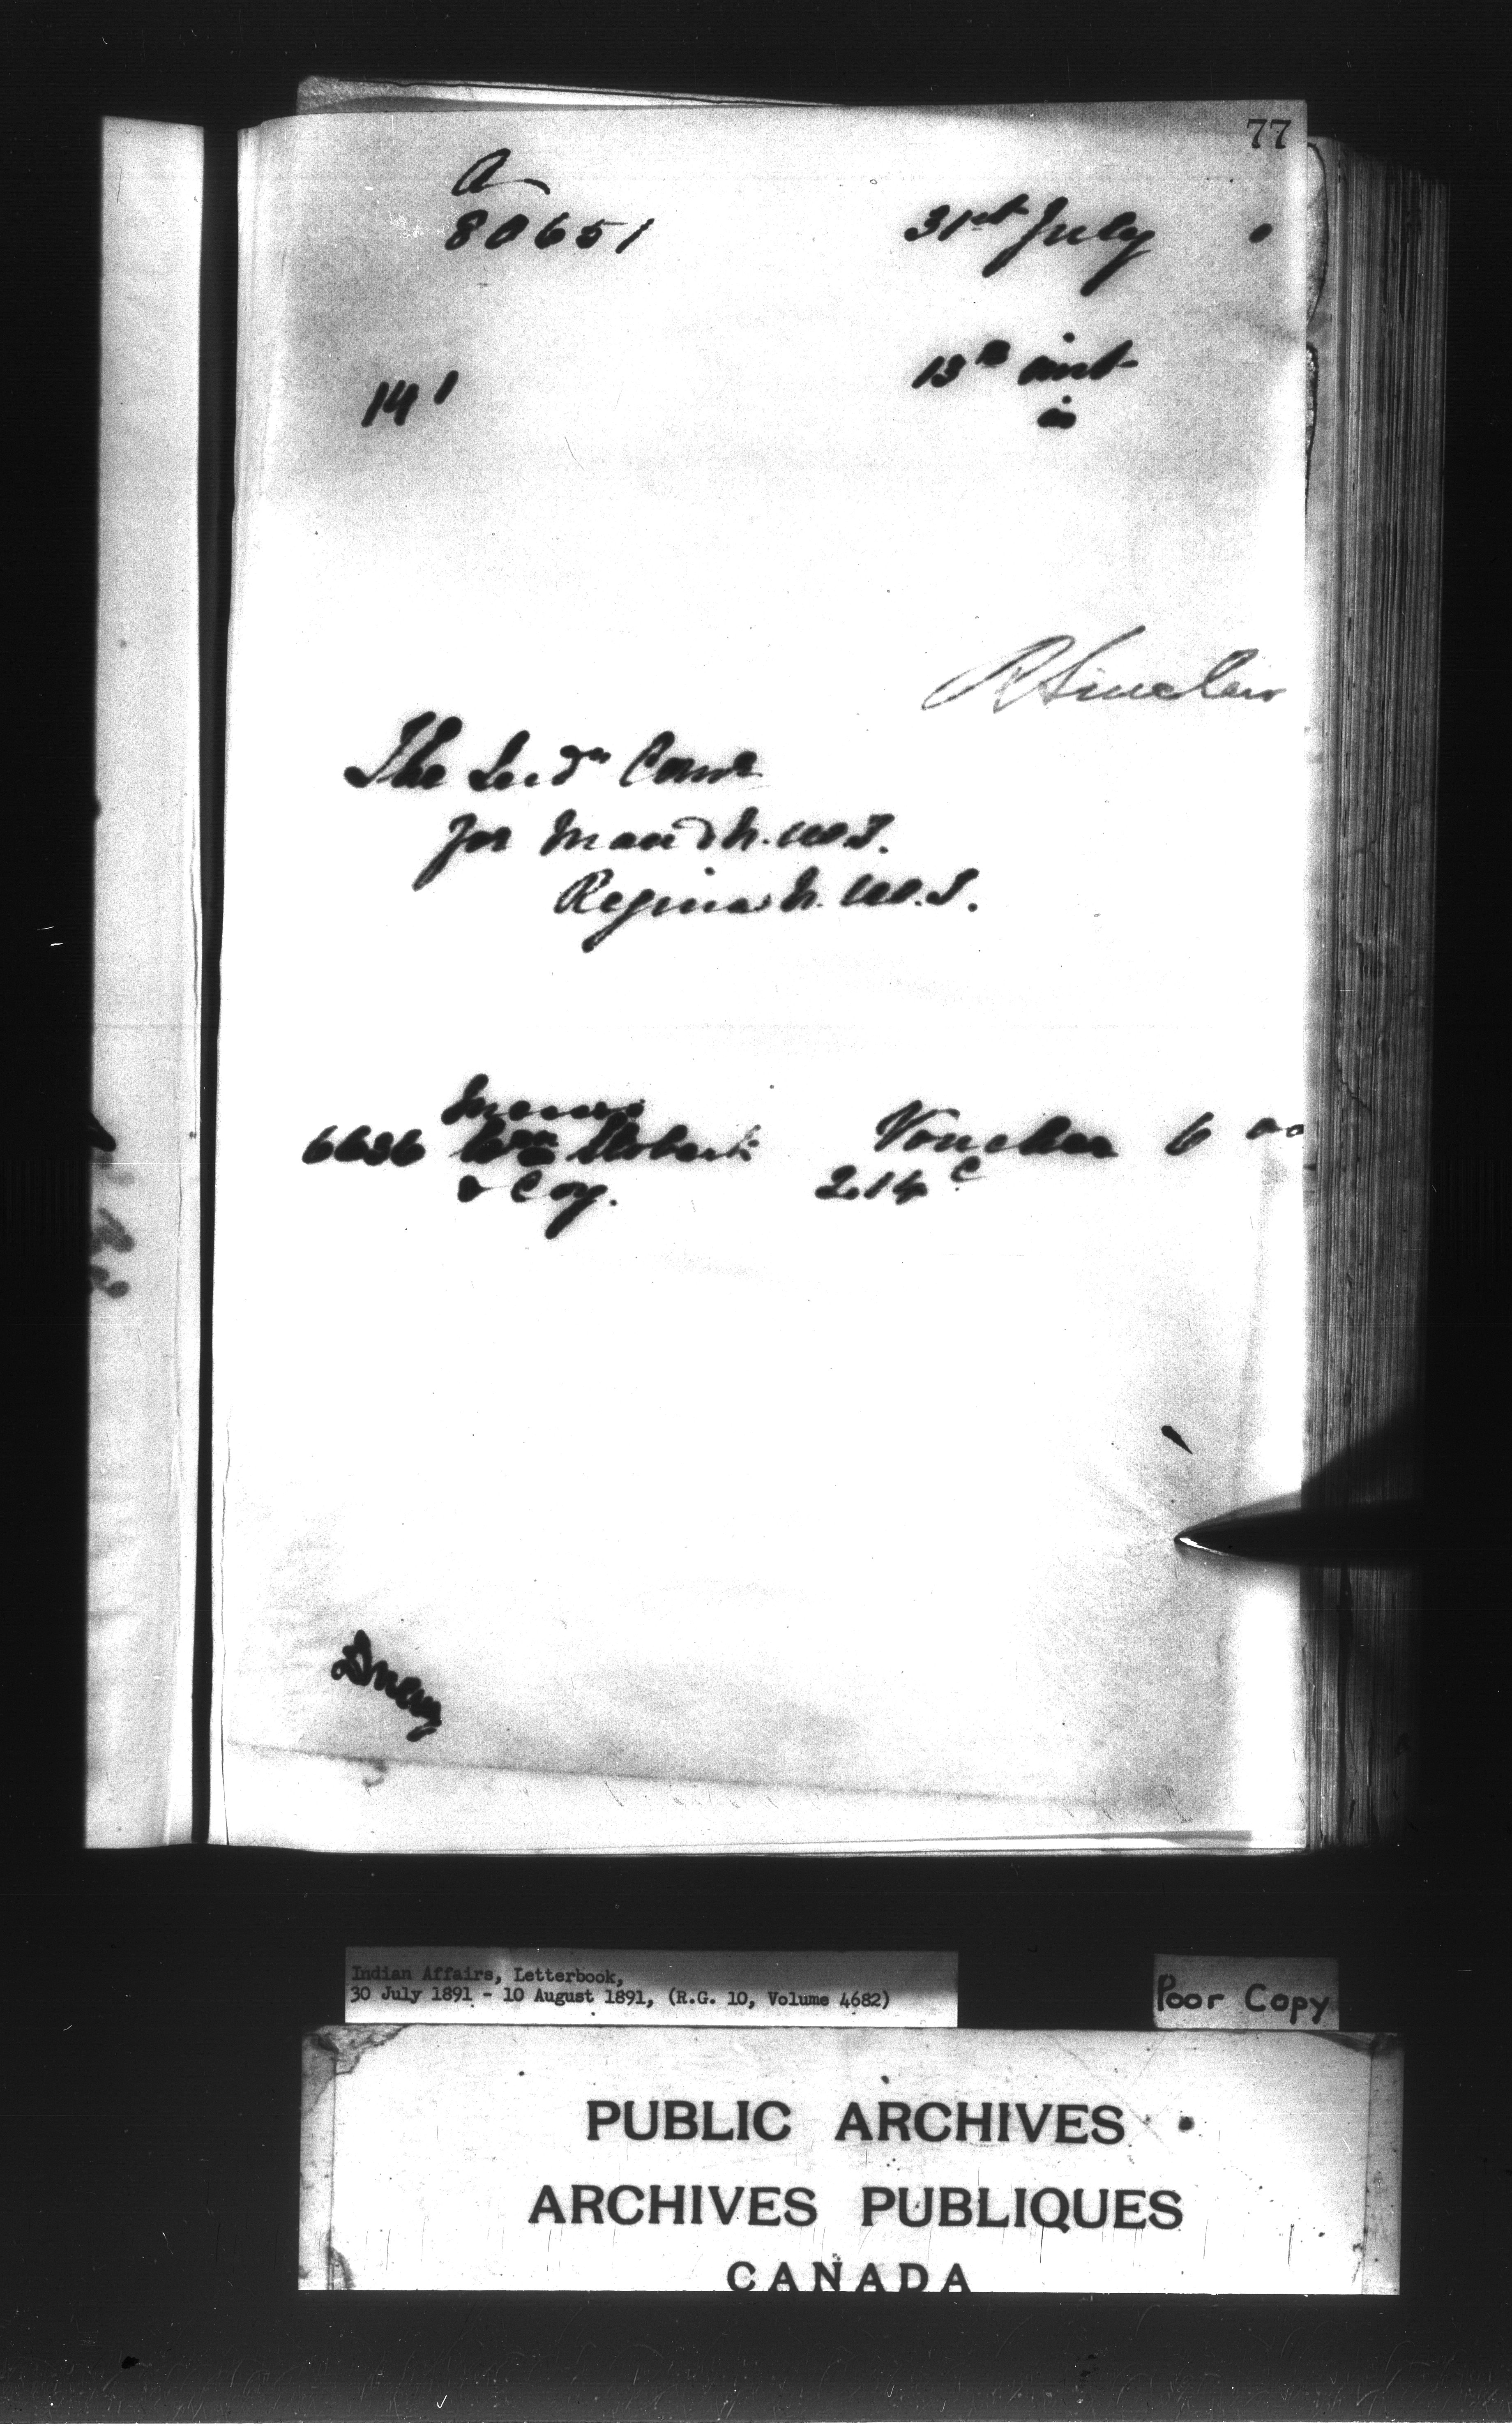 77
a
80651 31st July
141 13th inst
is
R Sinclair
The Ind'n Com'r
for Man & N.W.T.
Regina N.W.T.
Messrs
6636 Wm Stobart Voucher 6 00
& Coy. 214 c
Indian Affairs, Letterbook,
30 July 1891 - 10 August 1891, (R.G. 10, Volume 4682)
Poor Copy
PUBLIC ARCHIVES
ARCHIVES PUBLIQUES
CANADA